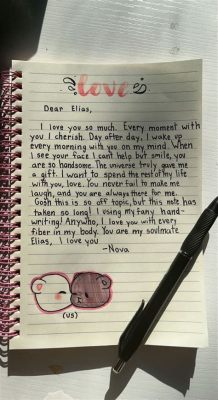 love
Dear Elias,
I love you so much. Every moment with
you I cherish. Day after day, I wake up
every morning with you on my mind. When
I see your face I cant help but smile, you
are so handsome. The universe truly gave me
a gift. I want to spend the rest of my life
with you, love. You never fail to make me
laugh, and you are always there for me.
Gosh this is so off topic, but this note has
taken so long! I using my fany hand-
writing! Anywho, I love you with every
fiber in my body. You are my soulmate
Elias, I love you
-Nova
(us)